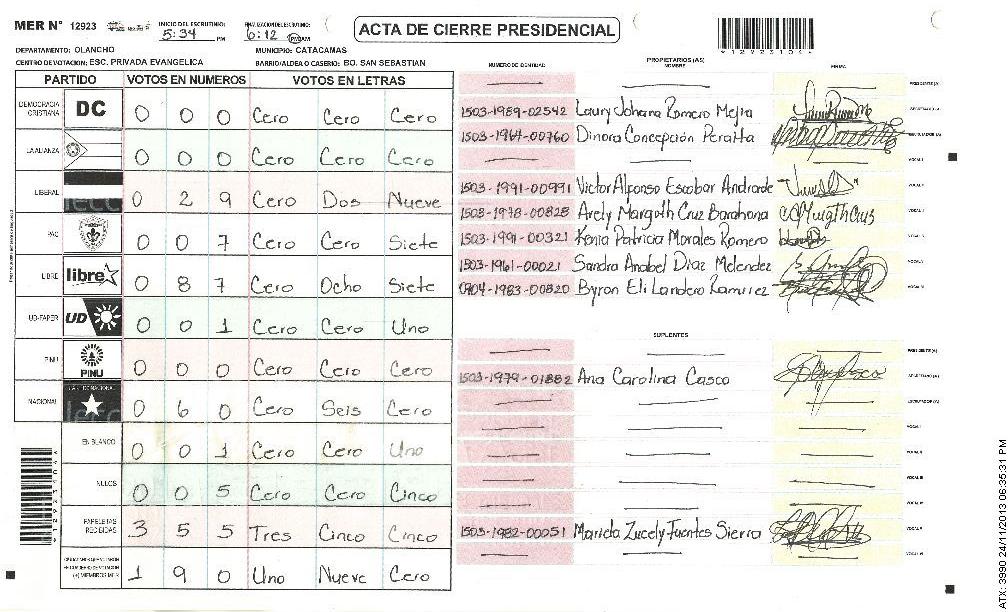 MER N° 12923 INICIO DEL ESCRUTINIO: 5:34 PM FINALIZACION DEL ESCRUTINIO: 6:12 PM
ACTA DE CIERRE PRESIDENCIAL
DEPARTAMENTO: OLANCHO MUNICIPIO: CATACAMAS
CENTRO DE VOTACION: ESC. PRIVADA EVANGELICA BARRIO/ALDEA O CASERIO: BO. SAN SEBASTIAN
PARTIDO VOTOS EN NUMEROS VOTOS EN LETRAS
DEMOCRACIA CRISTIANA DC 0 0 0 Cero Cero Cero
LA ALIANZA 0 0 0 Cero Cero Cero
LIBERAL 0 2 9 Cero Dos Nueve
PAC 0 0 7 Cero Cero Siete
LIBRE libre 0 8 7 Cero Ocho Siete
UD-FAPER UD 0 0 1 Cero Cero Uno
PINU PINU 0 0 0 Cero Cero Cero
NACIONAL 0 6 0 Cero Seis Cero
EN BLANCO 0 0 1 Cero Cero Uno
NULOS 0 0 5 Cero Cero Cinco
PAPELETAS RECIBIDAS 3 5 5 Tres Cinco Cinco
1 9 0 Uno Nueve Cero
NUMERO DE IDENTIDAD PROPIETARIOS (AS) NOMBRE FIRMA
PRESIDENTE (A)
1503-1989-02542 Laury Johana Romero Mejia SECRETARIO (A)
1503-1964-00760 Dinora Concepción Peralta ESCRUTADOR (A)
VOCAL I
1503-1991-00991 Victor Alfonso Escobar Andrade
1503-1978-00828 Arely Margoth Cruz Barahona
1503-1991-00321 Kenia Patricia Morales Romero
1503-1961-00021 Sandra Anabel Diaz Melendez
0904-1983-00820 Byron Eli Landero Ramirez
SUPLENTES
PRESIDENTE (A)
1503-1979-01882 Ana Carolina Casco SECRETARIO (A)
ESCRUTADOR (A)
VOCAL I
VOCAL II
VOCAL III
VOCAL IV
1503-1982-00051 Mariela Zucely Fuentes Sierra VOCAL V
VOCAL VI
ATX: 3990 24/11/2013 06:35:31 PM